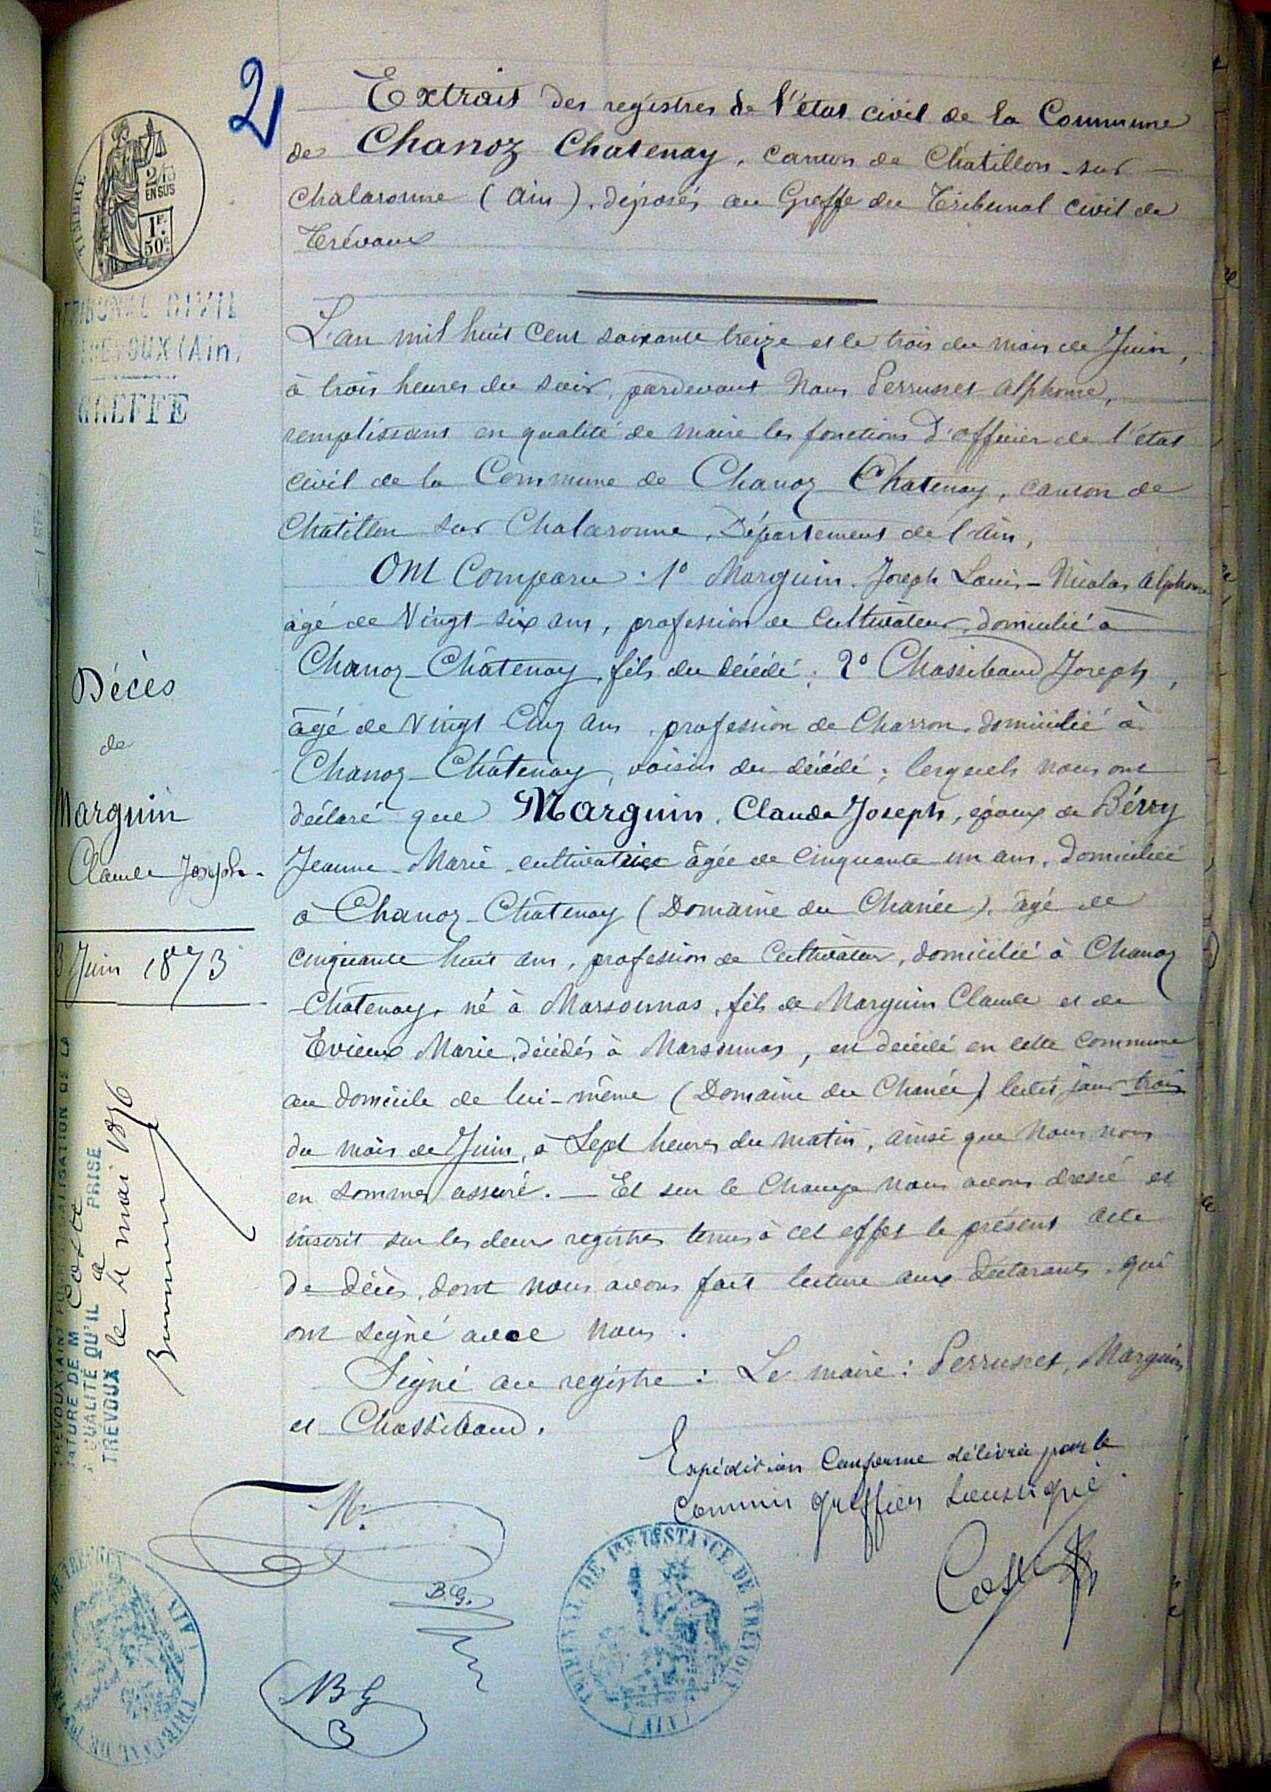 2
Extrait des registres de l'état civil de la Commune
de Chanoz Chatenay, canton de Châtillon-sur-
Chalaronne (Ain), déposés au Greffe du Tribunal civil de
Trévoux
TIMBRE
2/10
EN SUS
1F.
50c
TRIBUNAL CIVIL
TREVOUX (Ain)
GREFFE
L'an mil huit cent soixante treize et le trois du mois de Juin,
à trois heures du soir, pardevant Nous Perrusset Alphonse,
remplissant en qualité de maire les fonctions d'officier de l'état
civil de la Commune de Chanoz Chatenay, canton de
Châtillon sur Chalaronne, Département de l'Ain,
Ont Comparu : 1º Marguin Joseph Louis-Nicolas Alphonse
âgé de Vingt-six ans, profession de Cultivateur, domicilié à
Chanoz-Châtenay, fils du décédé; 2º Chassibaud Joseph,
âgé de Vingt Cinq ans, profession de Charron, domicilié à
Chanoz-Châtenay, voisin du décédé; lesquels nous ont
déclaré que Marguin, Claude Joseph, époux de Bérry
Jeanne-Marie cultivatrice âgée de cinquante-un ans, domiciliée
à Chanoz-Châtenay (Domaine du Chanée), âgé de
cinquante huit ans, profession de Cultivateur, domicilié à Chanoz
Châtenay, né à Marsonnas, fils de Marguin Claude et de
Evieux Marie, décédés à Marsonnas, est décédé en cette commune
au domicile de lui-même (Domaine du Chanée) ledit jour trois
du mois de Juin, à Sept heures du matin, ainsi que Nous nous
en sommes assuré. — Et sur le Champ nous avons dressé et
inscrit sur les deux registres tenus à cet effet le présent acte
de décès, dont nous avons fait lecture aux déclarants, qui
ont signé avec Nous.
Signé au registre : Le maire : Perrusset, Marguin
et Chassibaud.
Expédition Conforme délivrée par le
commis greffier soussigné.
Coste
Décès
de
Marguin
Claude Joseph
3 Juin 1873
LEGALISATION DE LA
NATURE DE M Coste
QUALITÉ QU'IL a PRISE
TRÉVOUX le 4 mai 1896
B.G.
NBG
TRIBUNAL DE 1ERE INSTANCE DE TRÉVOUX
(AIN)